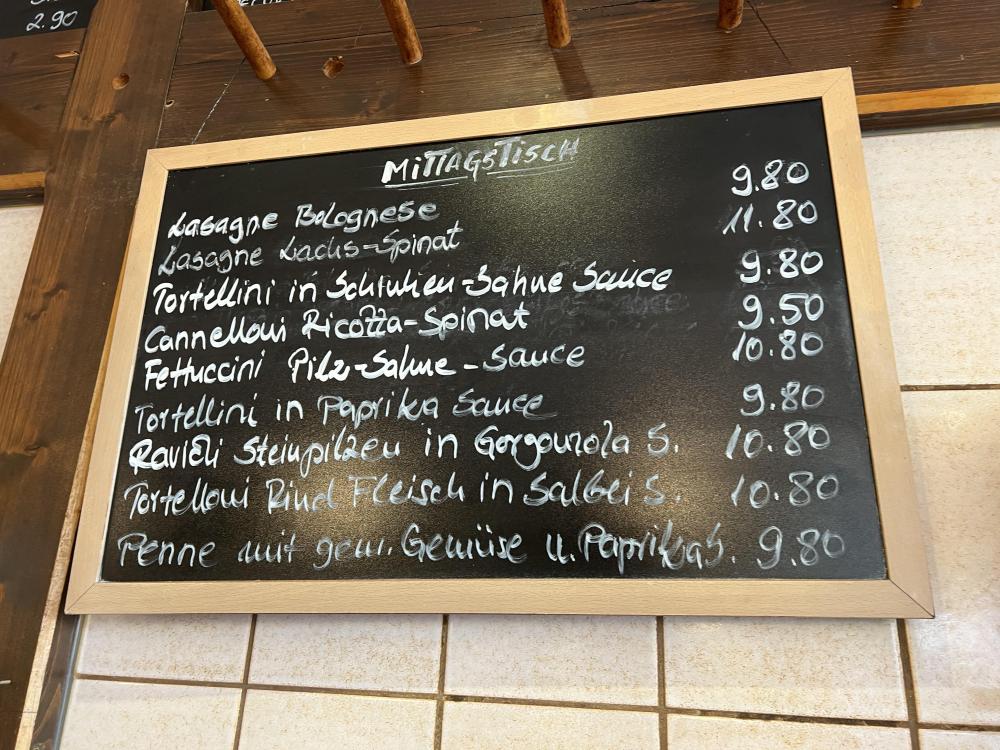 2.90
MITTAGSTISCH
Lasagne Bolognese 9.80
Lasagne Lachs-Spinat 11.80
Tortellini in Schinken-Sahne Sauce 9.80
Cannelloni Ricotta-Spinat 9.50
Fettuccini Pilz-Sahne-Sauce 10.80
Tortellini in Paprika Sauce 9.80
Ravioli Steinpilzen in Gorgonzola S. 10.80
Tortelloni Rind Fleisch in Salbei S. 10.80
Penne mit gem. Gemüse u. Paprika S. 9.80